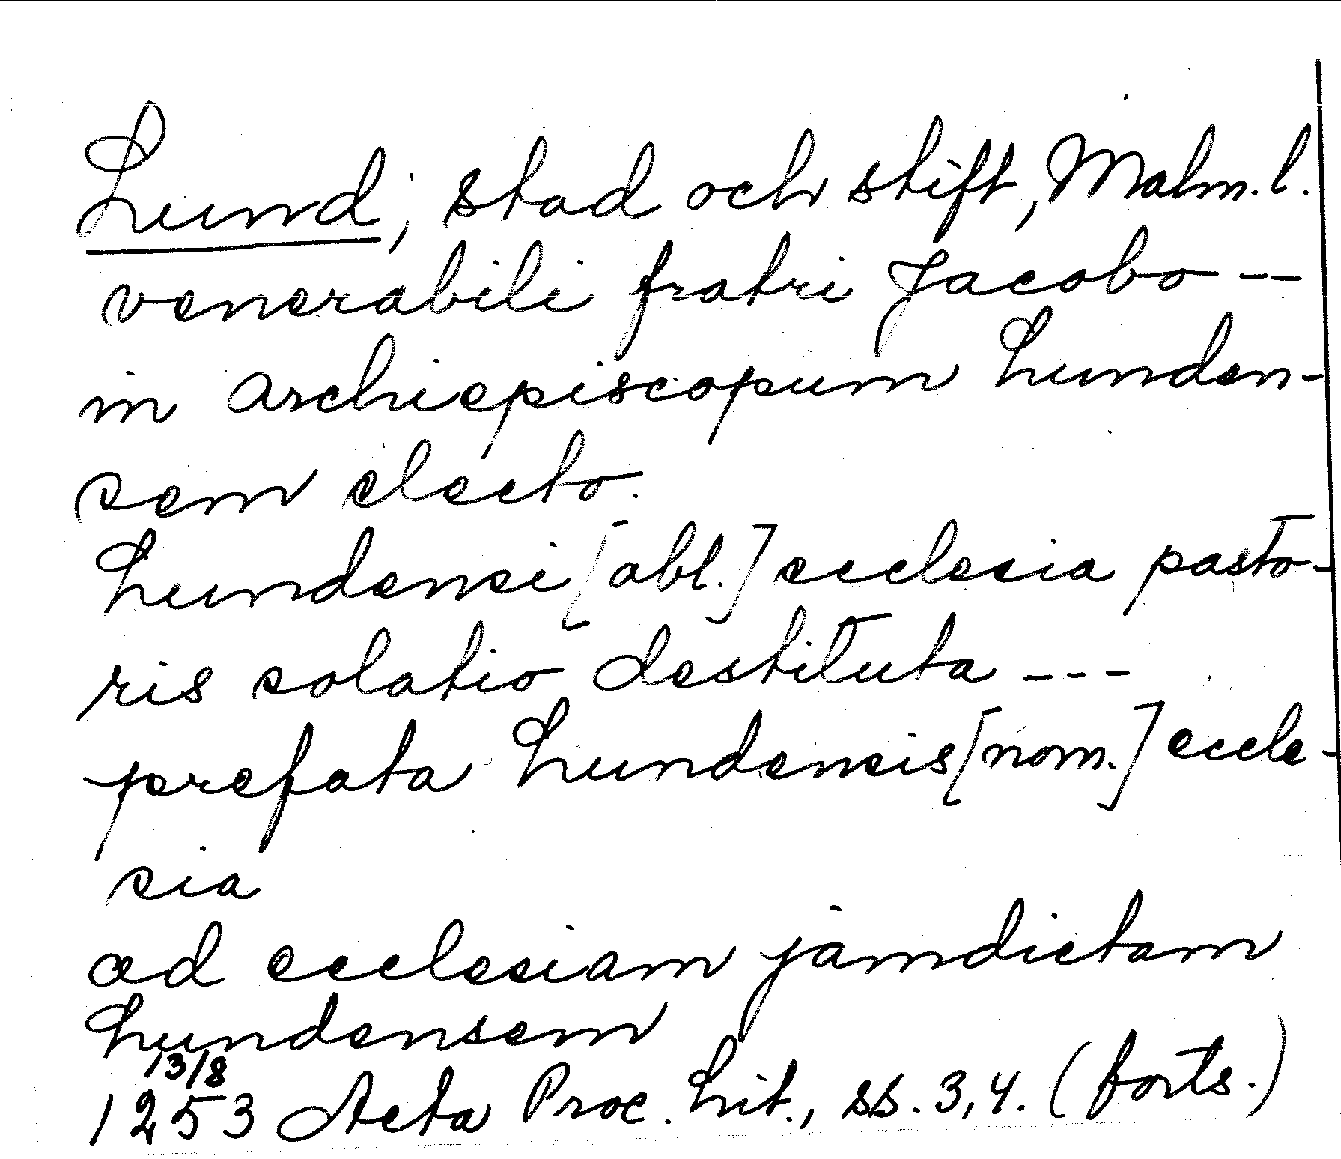 Lund, stad och stift, Malm.l.
venerabili fratri Jacobo --
in archiepiscopum Lunden-
sem electo.
Lundensi [abl.] ecclesia pasto-
ris solatio destituta ---
prefata Lundensis [nom.] eccle-
sia
ad ecclesiam jamdictam
Lundensem
13/8
1253 Acta Proc. Lit., ss. 3,4. (forts.)